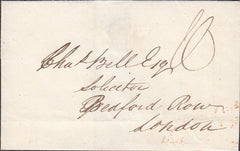 Chas Bell Esq 10
Solicitor
Bedford Row
London